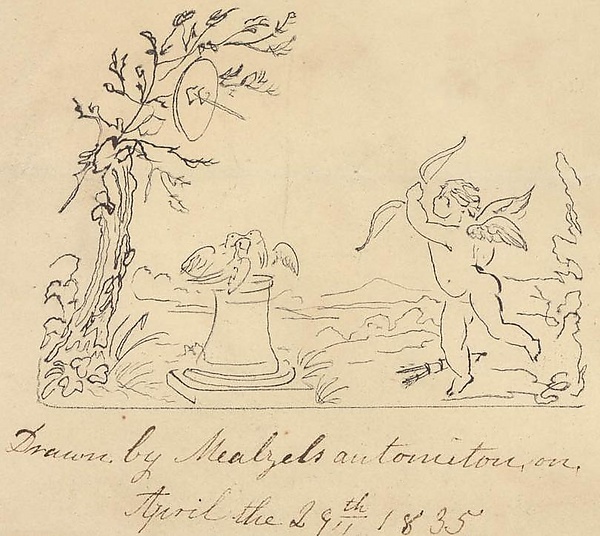 Drawn. by Mealzels automiton, on.
April the 29th 1835